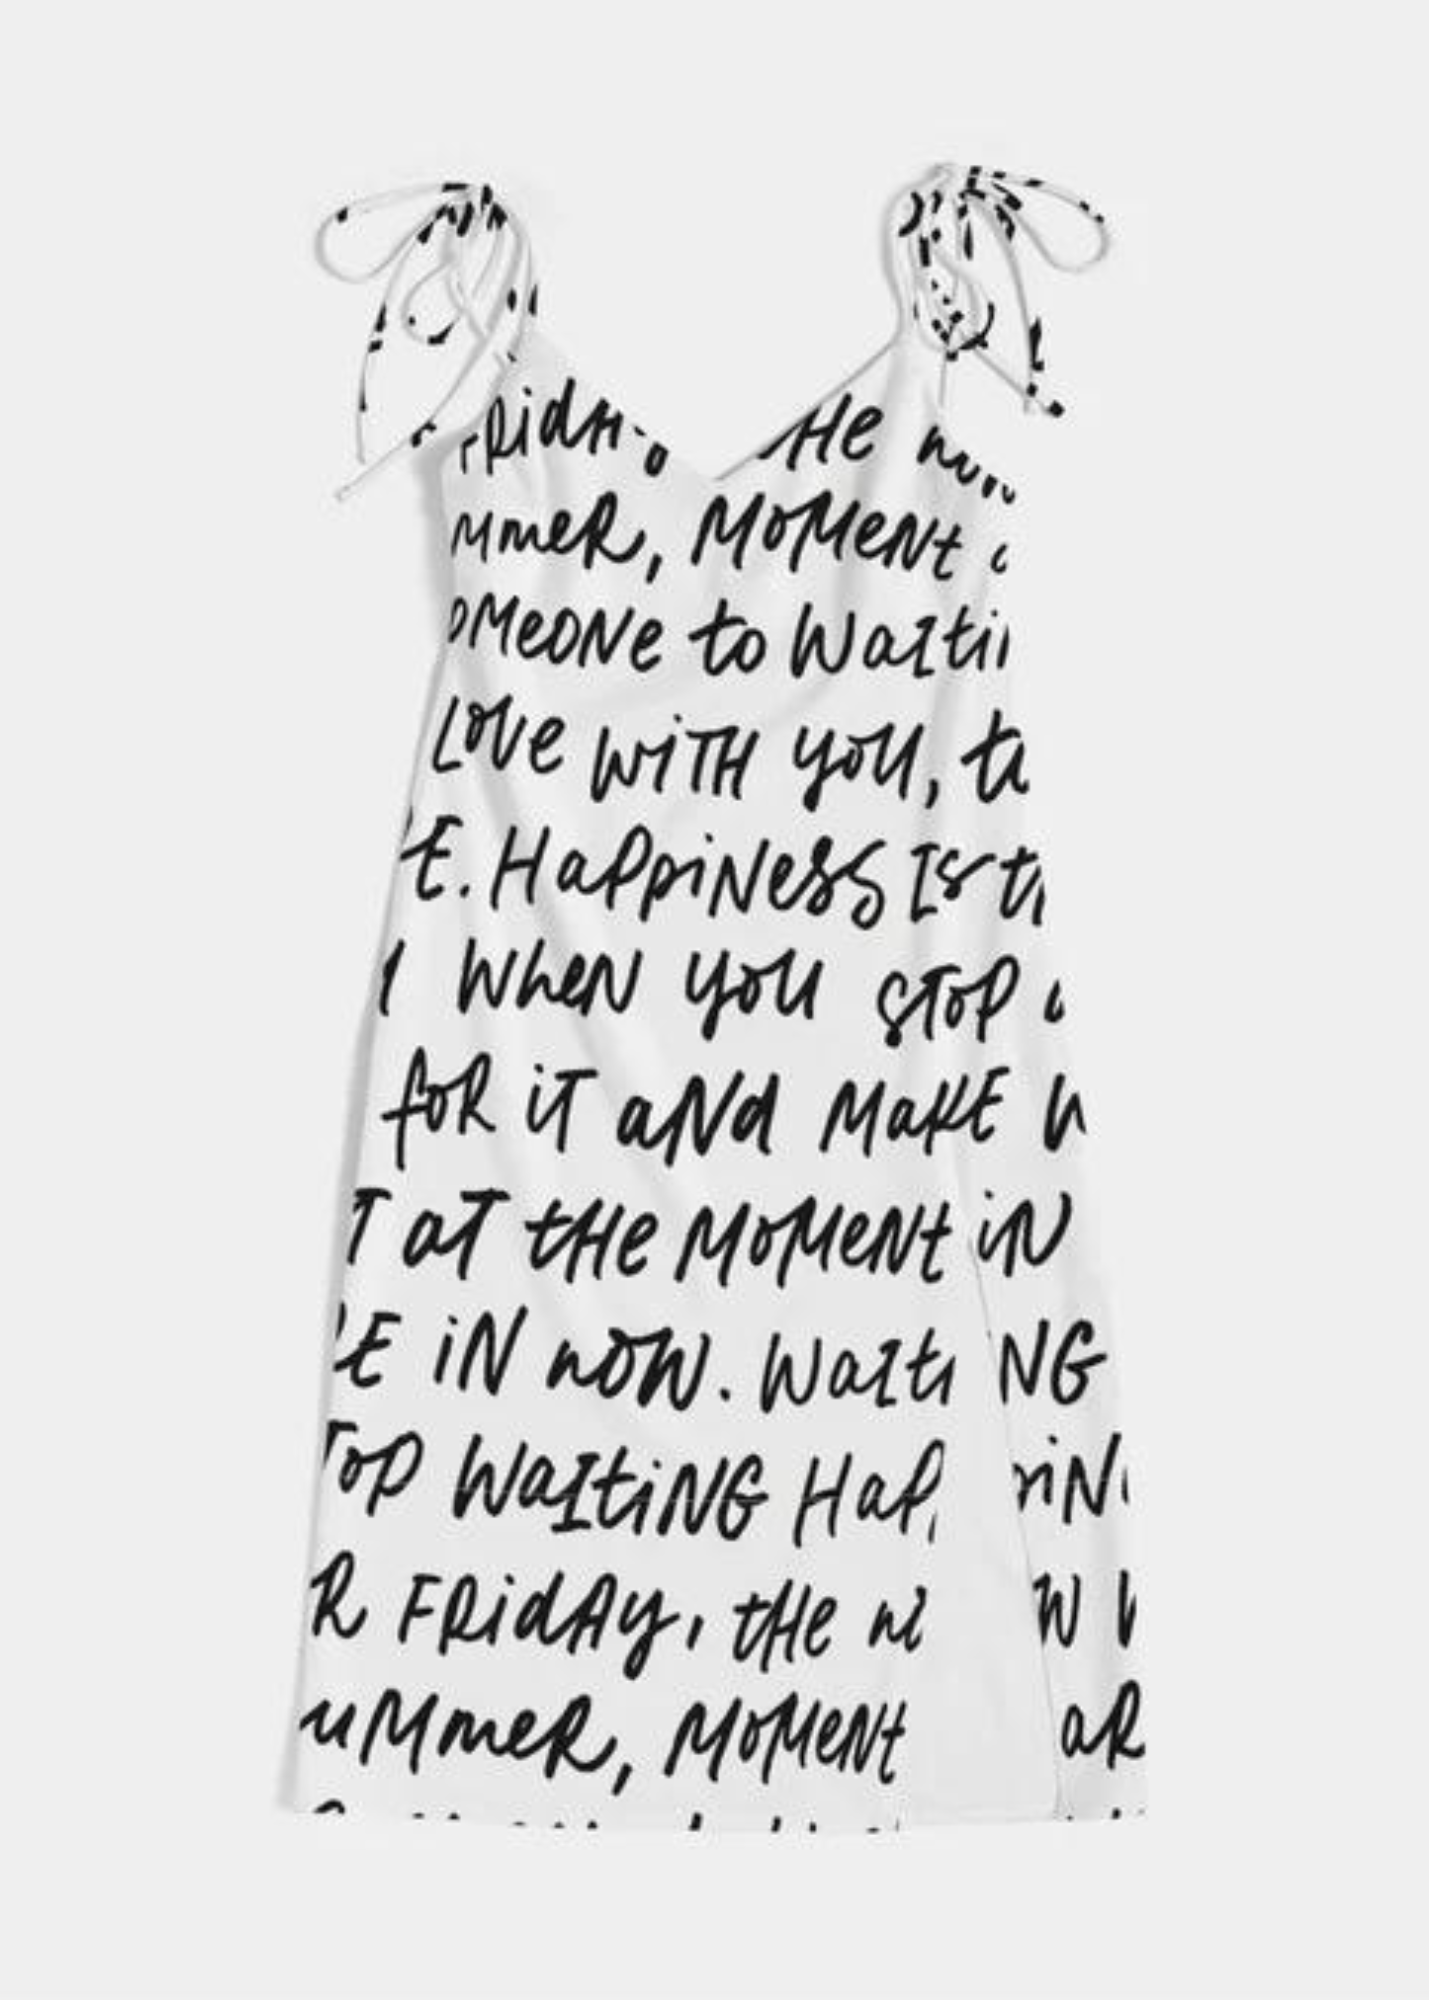 THE
MMER, MOMENT
OMEONE to WaIti
Love WiTH you,
E. HaPpiNess Is
WheN you STOP
foR iT aNd MaKE
T aT tHe MoMeNt iN
E iN nOW. WaItiNG
ToP WaItiNG HaP
R FRidAy, tHe
uMmeR, MoMeNt aR